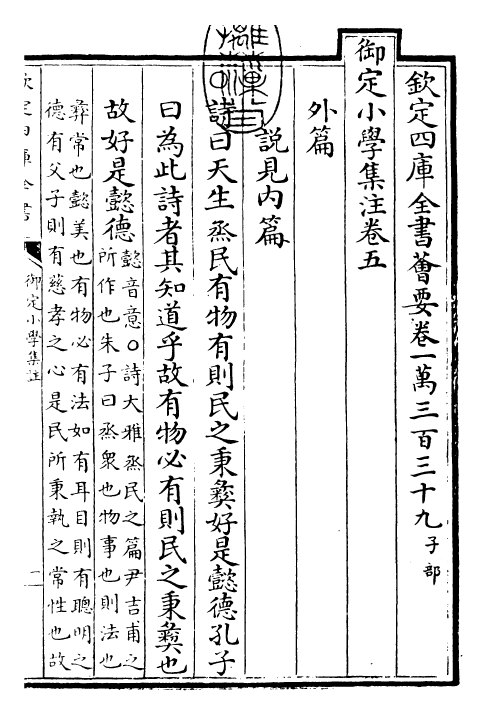 欽定四庫全書薈要卷一萬三百三十九子部
御定小學集注卷五
外篇
說見內篇
詩曰天生烝民有物有則民之秉彝好是懿德孔子
曰為此詩者其知道乎故有物必有則民之秉彝也
故好是懿德懿音意○詩大雅烝民之篇尹吉甫之
所作也朱子曰烝衆也物事也則法也
彝常也懿美也有物必有法如有耳目則有聰明之
德有父子則有慈孝之心是民所秉執之常性也故
欽定四庫全書
御定小學集註